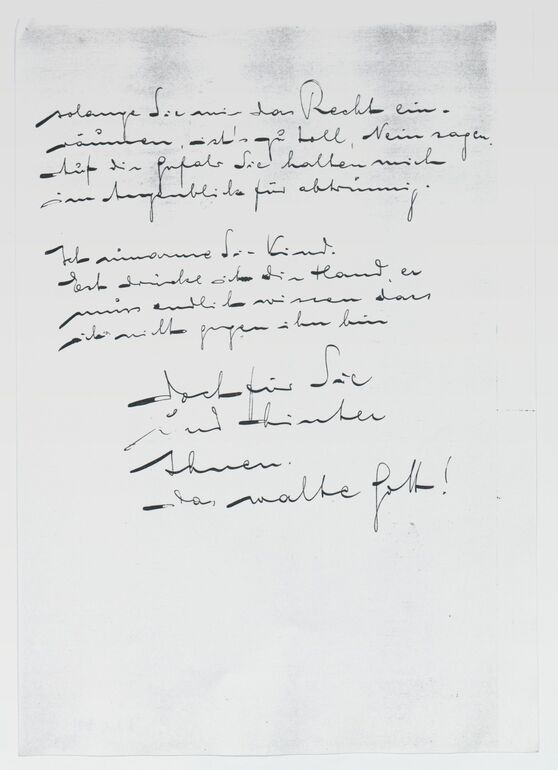 solange Sie mir das Recht ein-
räumen, ist's zu toll, Nein sagen.
Auf die Gefahr Sie halten mich
im Augenblick für abtrünnig.
Ich umarme Sie Kind.
drücke ich die Hand, er
muss endlich wissen dass
ich nicht gegen ihn bin
doch für Sie
und hinter
Ihnen.
das walte Gott!